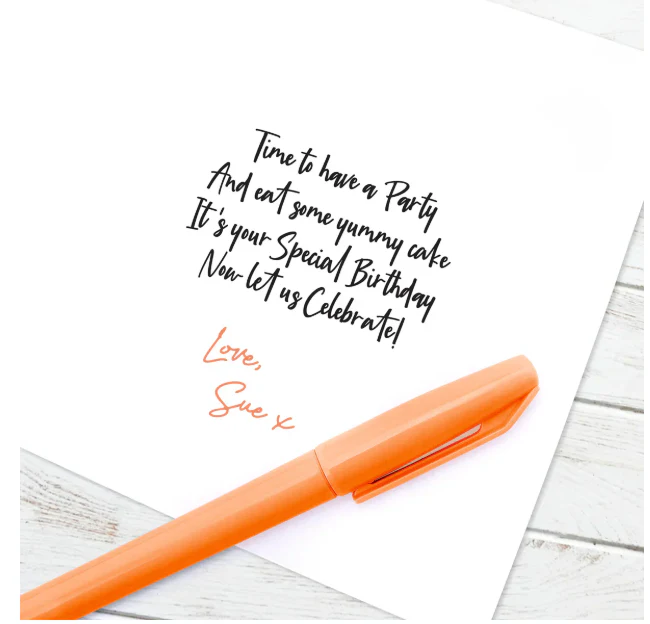 Time to have a Party
And eat some yummy cake
It's your Special Birthday
Now let us Celebrate!
Love,
Sue x